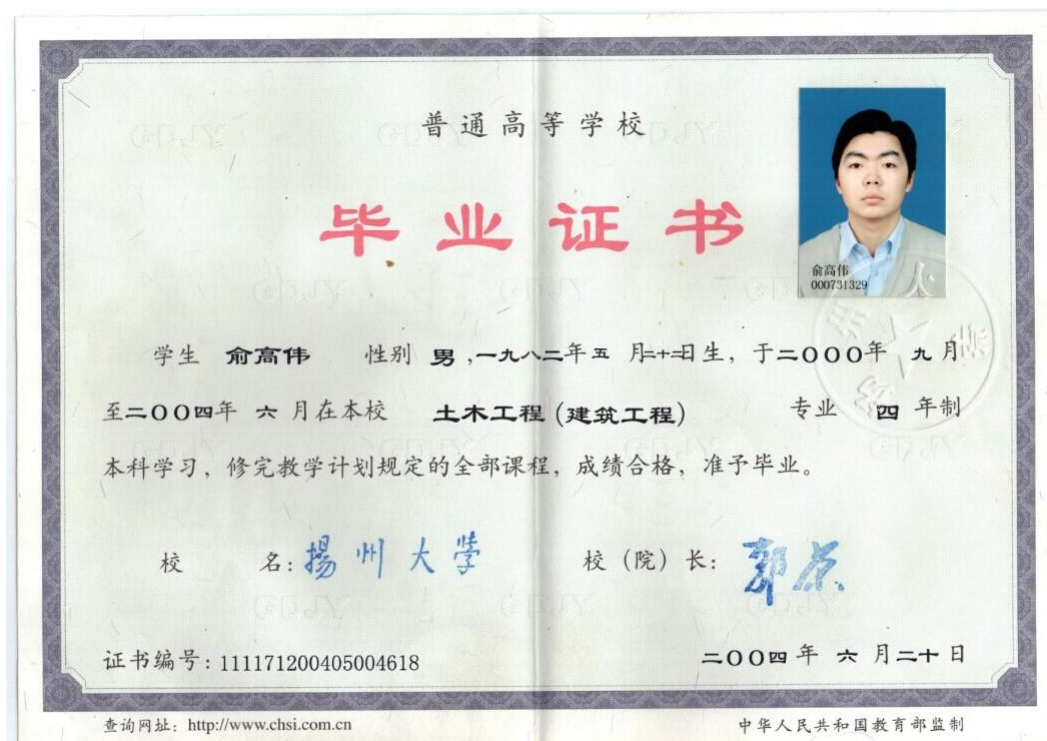 普通高等学校
毕业证书
俞高伟
000731329
学生 俞高伟 性别 男，一九八二年五 月二十二日生，于二〇〇〇年 九 月
至二〇〇四年 六 月在本校 土木工程(建筑工程) 专业 四 年制
本科学习，修完教学计划规定的全部课程，成绩合格，准予毕业。
校 名：揚州大学 校（院）长：郭荣
证书编号：111171200405004618 二〇〇四年 六 月二十日
查询网址：http://www.chsi.com.cn 中华人民共和国教育部监制